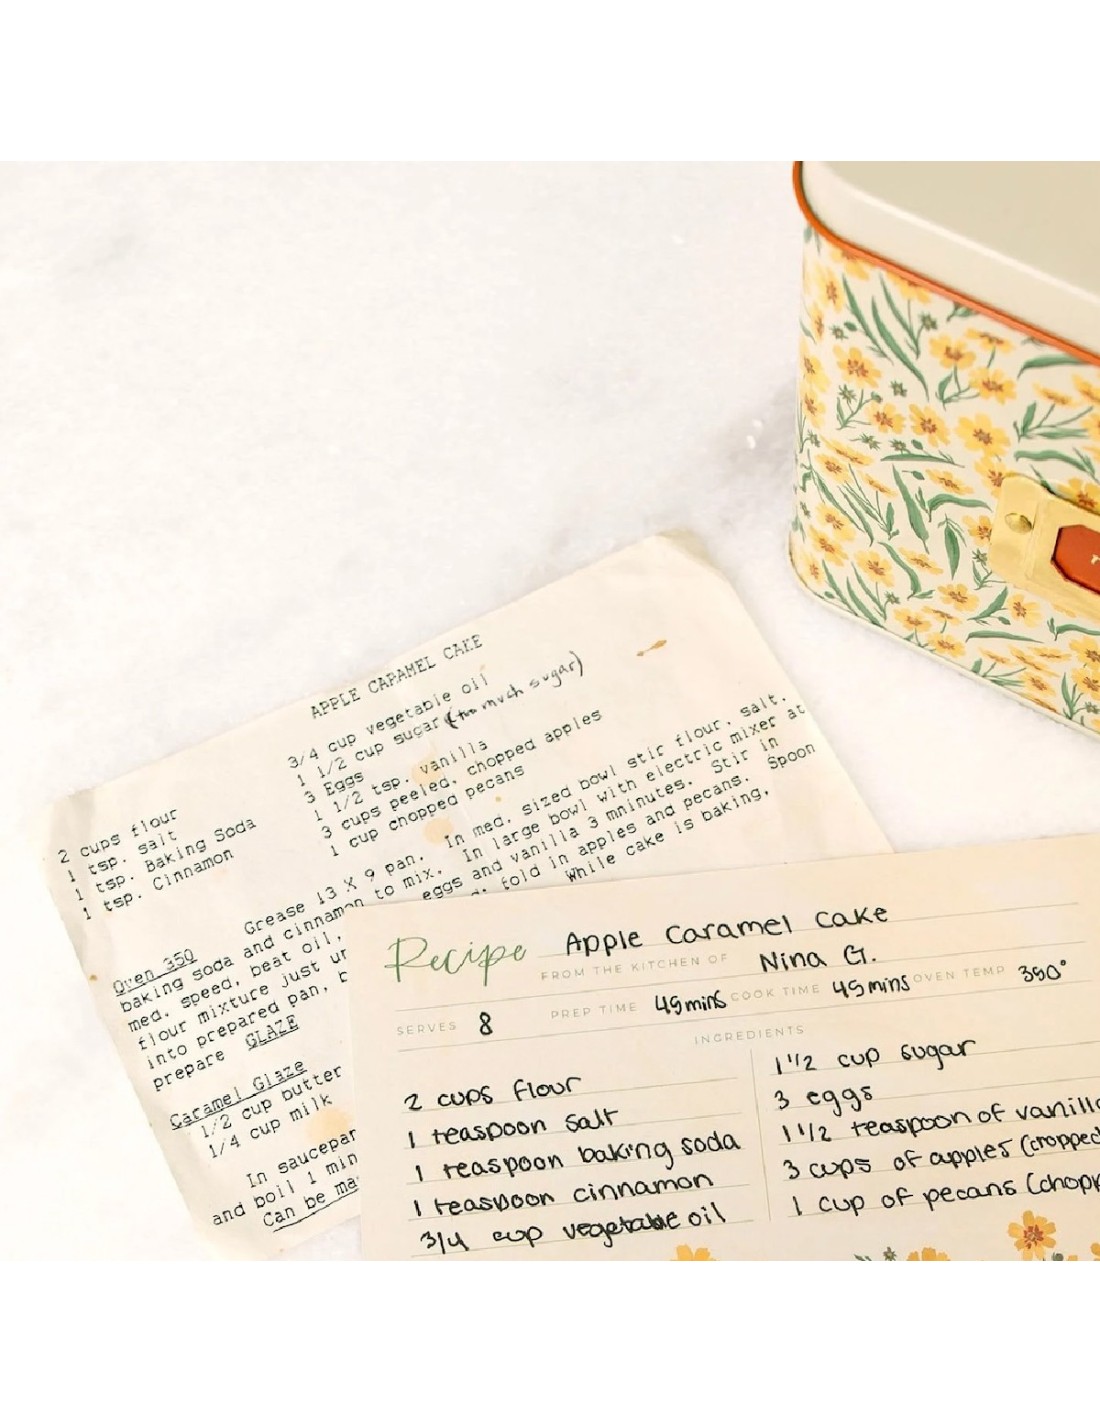 APPLE CARAMEL CAKE
3/4 cup vegetable oil
1 1/2 cup sugar (too much sugar)
3 Eggs
1 1/2 tsp. vanilla
3 cups peeled, chopped apples
1 cup chopped pecans
2 cups flour
1 tsp. salt
1 tsp. Baking Soda
1 tsp. Cinnamon
Oven 350 Grease 13 X 9 pan. In med. sized bowl stir flour, salt,
baking soda and cinnamon to mix. In large bowl with electric mixer at
med. speed, beat oil, eggs and vanilla 3 mninutes. Stir in
flour mixture just fold in apples and pecans. Spoon
into prepared pan, While cake is baking,
prepare GLAZE
Caramel Glaze
1/2 cup butter
1/4 cup milk
In
and boil 1 min
Can be
Recipe Apple Caramel Cake
FROM THE KITCHEN OF Nina G.
SERVES 8 PREP TIME 45mins COOK TIME 45mins OVEN TEMP 350°
INGREDIENTS
2 cups flour
1 teaspoon salt
1 teaspoon baking soda
1 teaspoon cinnamon
3/4 cup vegetable oil
1 1/2 cup sugar
3 eggs
1 1/2 teaspoon of vanilla
3 cups of apples (chopped
1 cup of pecans (chopp